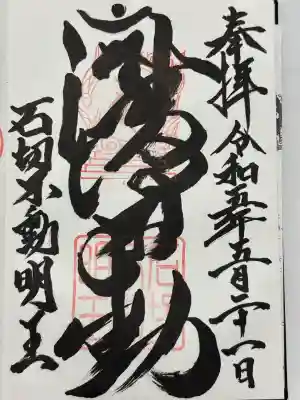 奉拝 令和五年五月二十一日
不動
石切不動明王